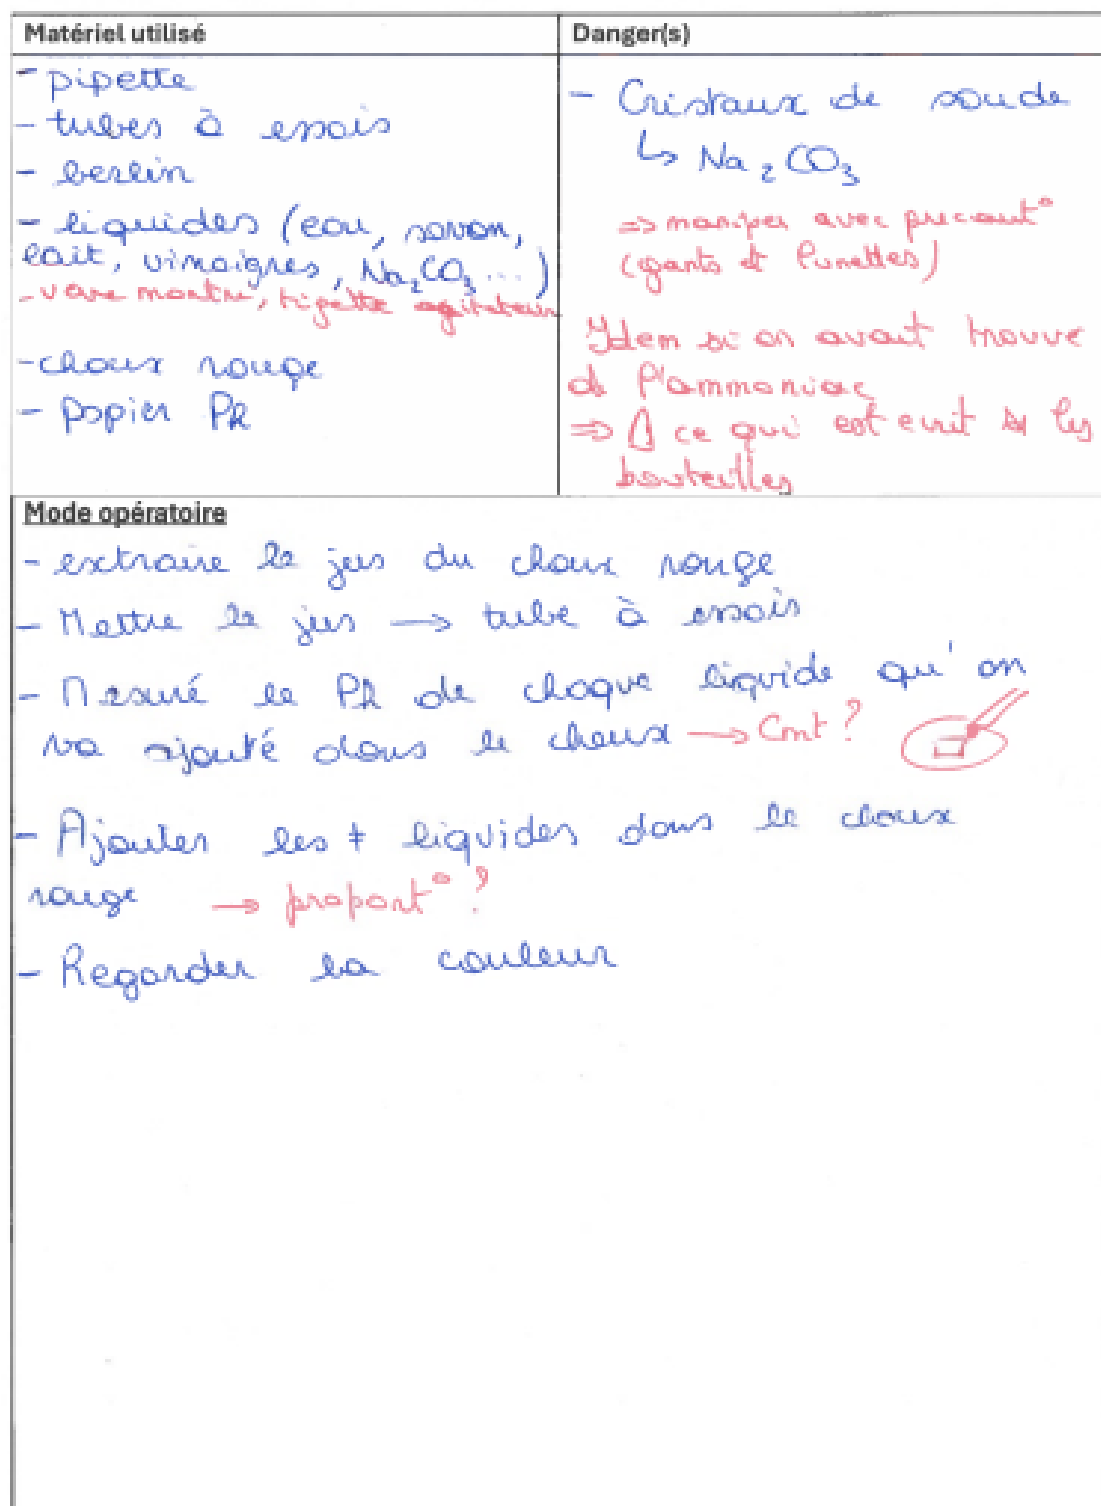 Matériel utilisé
- pipette
- tubes à essais
- berlin
- liquides (eau, savon,
lait, vinaigres, Na₂CO₃ ...)
- verre montre, tigette agitateur
- choux rouge
- papier Ph
Danger(s)
- Cristaux de soude
↳ Na₂CO₃
⇒ maniper avec precaut°
(gants et lunettes)
Idem si on avait trouve
de l'ammoniac
⇒ Δ ce qui est ecrit sur les
bouteilles
Mode opératoire
- extraire le jus du choux rouge
- Mettre le jus → tube à essais
- Mesuré le Ph de chaque liquide qu'on
va ajouté dans le choux → Cmt ?
- Ajouter les ≠ liquides dans le choux
rouge → proport° ?
- Regarder la couleur